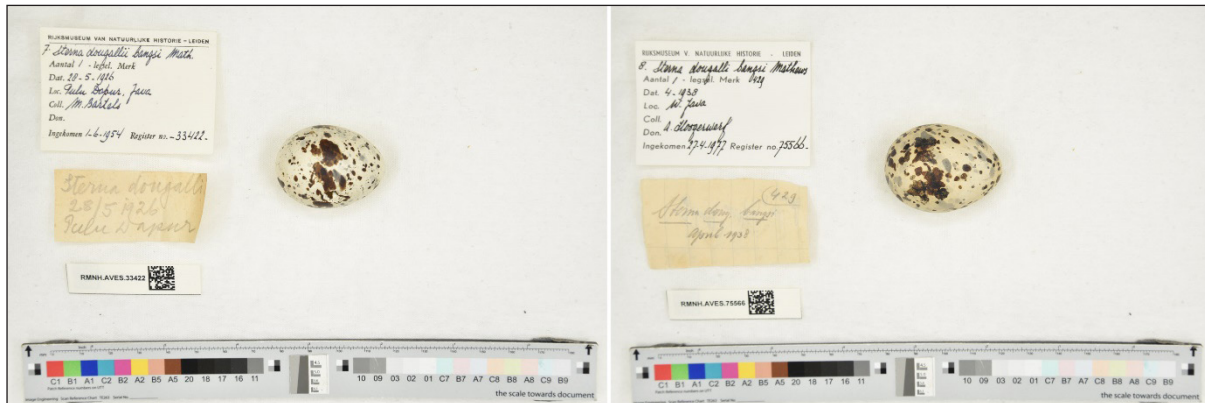 RIJKSMUSEUM VAN NATUURLIJKE HISTORIE - LEIDEN
7. Sterna dougallii bangsi Math.
Aantal 1 - legsel. Merk
Dat. 28-5-1926
Loc. Pulu Dapur, Java
Coll. M. Bartels
Don.
Ingekomen 1-6-1954 Register no. -33422-
Sterna dougalli
28/5 1926
Pulu Dapur
RMNH.AVES.33422
C1 B1 A1 C2 B2 A2 B5 A5 20 18 17 16 11 10 09 03 02 01 C7 B7 A7 C8 B8 A8 C9 B9
the scale towards document
RIJKSMUSEUM V. NATUURLIJKE HISTORIE - LEIDEN
8. Sterna dougalli bangsi Mathews
Aantal 1 - legsel. Merk 429
Dat. 4-1938
Loc. W. Java
Coll.
Don. A. Hoogerwerf
Ingekomen 27-4-1977 Register no. 75566-
429
Sterna doug. bangsi
April 1938
RMNH.AVES.75566
C1 B1 A1 C2 B2 A2 B5 A5 20 18 17 16 11 10 09 03 02 01 C7 B7 A7 C8 B8 A8 C9 B9
the scale towards document